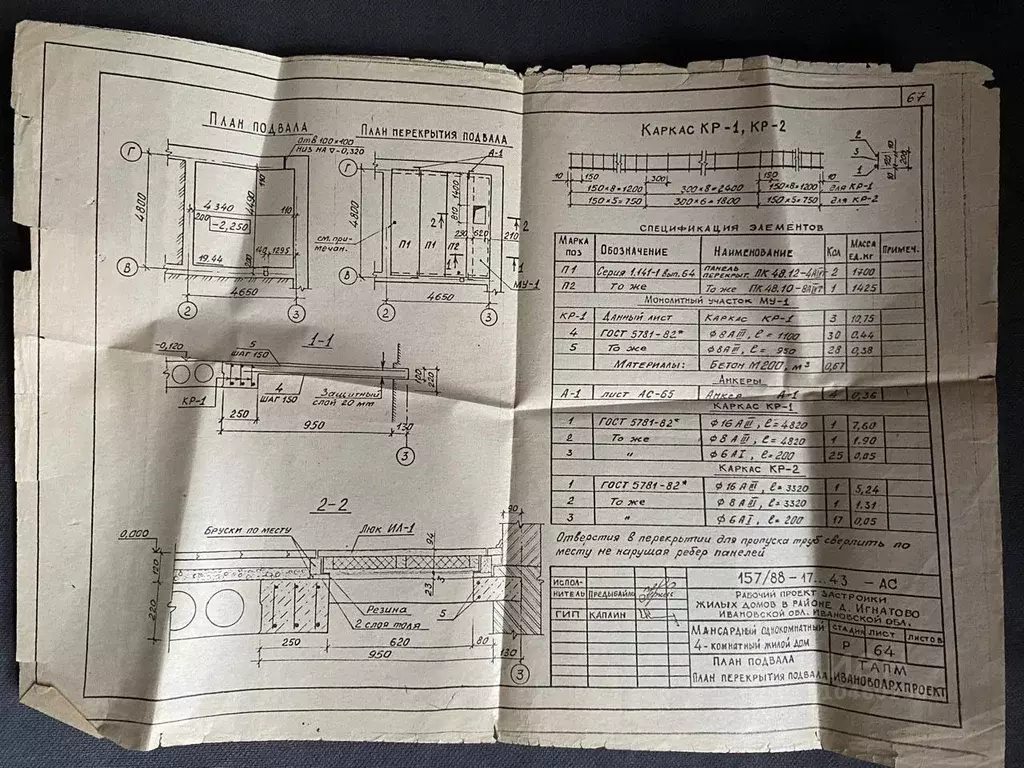 67
План подвала
отв 100×100
низ на -0,320
Г
В
4800
4340
200
-2,250
19.44
110
4490
110
140
1295
200
4650
2
3
План перекрытия подвала
А-1
Г
В
4800
см. примечан.
П1
П1
П2
2
2
1400
810
290
620
210
1
1
МУ-1
4650
2
3
1-1
-0,120
5
шаг 150
КР-1
4
шаг 150
Защитный
слой 20 мм
100
220
250
950
130
3
2-2
0,000
Бруски по месту
Люк ИЛ-1
94
90
120
220
23
3
Резина
2 слоя толя
5
250
620
80
950
130
3
Каркас КР-1, КР-2
2
3
1
10
150
300
150
10
150×8=1200
300×8=2400
150×8=1200
для КР-1
150×5=750
300×6=1800
150×5=750
для КР-2
Спецификация элементов
Марка поз
Обозначение
Наименование
Кол
Масса ед.кг
Примеч.
П1 Серия 1.141-1 вып.64 Панель перекрыт. ПК 48.12-4АIIIт 2 1700
П2 То же То же ПК 48.10-8АIIIт 1 1425
Монолитный участок МУ-1
КР-1 Данный лист Каркас КР-1 3 10,75
4 ГОСТ 5781-82* Ф8АIII, ℓ= 1100 30 0.44
5 То же Ф8АIII, ℓ= 950 28 0,38
Материалы: Бетон М200, м³ 0,67
Анкеры
А-1 лист АС-65 Анкер А-1 4 0,36
Каркас КР-1
1 ГОСТ 5781-82* Ф16АIII, ℓ=4820 1 7,60
2 То же Ф8АIII, ℓ=4820 1 1.90
3 " Ф6АI, ℓ=200 25 0,05
Каркас КР-2
1 ГОСТ 5781-82* Ф16АIII, ℓ=3320 1 5,24
2 То же Ф8АIII, ℓ=3320 1 1.31
3 " Ф6АI, ℓ=200 17 0,05
Отверстия в перекрытии для пропуска труб сверлить по
месту не нарушая ребер панелей
Испол-
нитель Предыбайло
ГИП Каплин
157/88-17...43 -АС
Рабочий проект застройки
жилых домов в районе д. Игнатово
Ивановской обл. Ивановской обл.
Мансардный однокомнатный
4-комнатный жилой дом
Стадия
Лист
Листов
Р
64
План подвала
План перекрытия подвала
ТАПМ
Ивановоархпроект